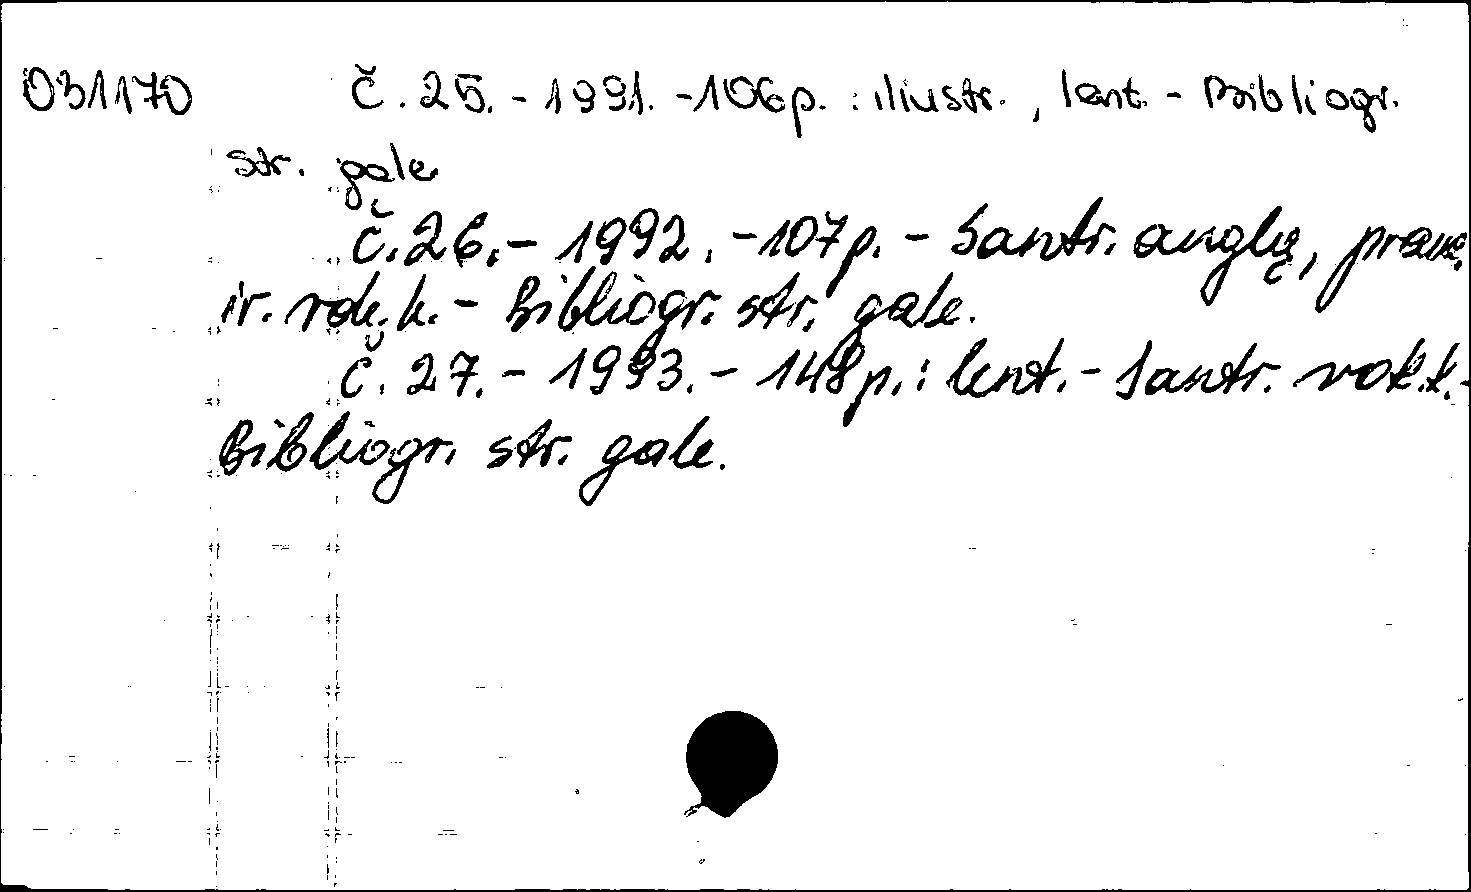 031170 Č. 25. - 1991. - 106p. : iliustr. , lent. - Bibliogr.
str. gale
Č. 26. - 1992. - 107p. - Santr. anglų, pranc.
ir. vok. k. - Bibliogr. str. gale.
Č. 27. - 1993. - 148p. : lent. - Santr. vok. k. -
Bibliogr. str. gale.